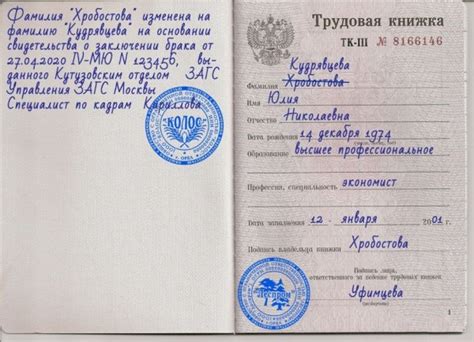 Фамилия "Хробостова" изменена на
фамилию "Кудрявцева" на основании
свидетельства о заключении брака от
27.04.2020 IV-МЮ N 123456, вы-
данного Кутузовским отделом ЗАГС
Управления ЗАГС Москвы
Специалист по кадрам Кириллова
КОЛОС
Трудовая книжка
ТК-III № 8166146
Кудрявцева
Фамилия Хробостова
Имя Юлия
Отчество Николаевна
Дата рождения 14 декабря 1974
Образование высшее профессиональное
Профессия, специальность экономист
Дата заполнения 12 января 2001 г.
Подпись владельца книжки Хробостова
Подпись лица,
ответственного за ведение трудовых книжек
Уфимцева
Леспром
1